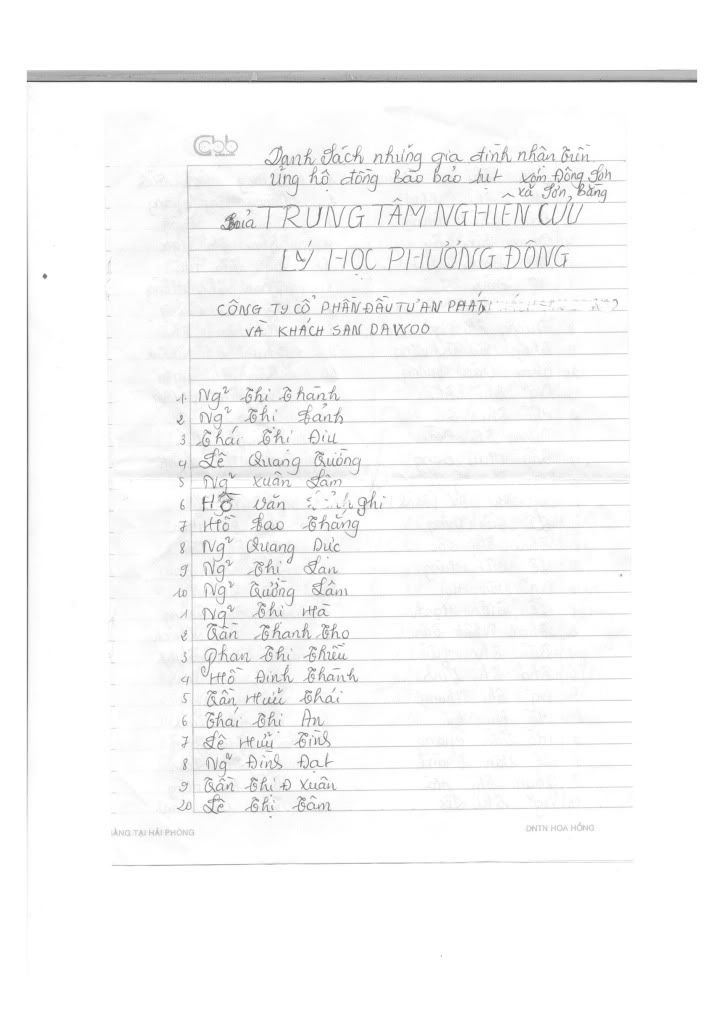 Cbb
Danh sách những gia đình nhận tiền
Ủng hộ đồng bào bão lụt xóm Đông Sơn
xã Sơn, Bằng
của TRUNG TÂM NGHIÊN CỨU
LÝ HỌC PHƯƠNG ĐÔNG
CÔNG TY CỔ PHẦN ĐẦU TƯ AN PHÁT
VÀ KHÁCH SAN DAWOO
1 Ng² Thị Thành
2 Ng² Thị Lảnh
3 Thái Thị Địu
4 Lê Quang Tường
5 Ng² Xuân Lâm
6 Hồ Văn Nghi
7 Hồ Sao Thắng
8 Ng² Quang Đức
9 Ng² Thị Lan
10 Ng² Tường Lâm
1 Ng² Thị Hà
2 Trần Thanh Tho
3 Phan Thị Thiều
4 Hồ Đình Thành
5 Trần Hưũ Thái
6 Thái Thị An
7 Lê Hưũ Tình
8 Ng² Đình Đạt
9 Trần Thị Đ Xuân
20 Lê Thị Tâm
ẰNG TẠI HẢI PHÒNG DNTN HOA HỒNG